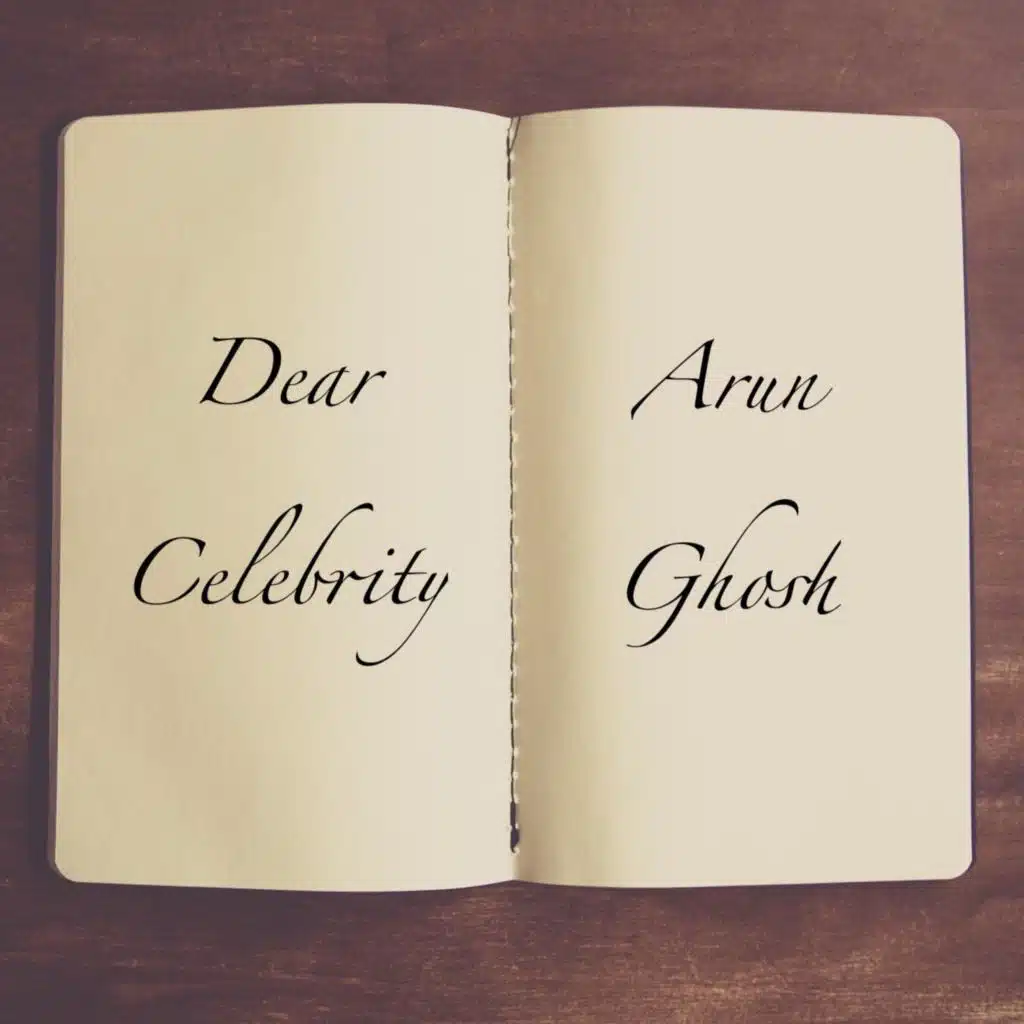 Dear
Celebrity
Arun
Ghosh